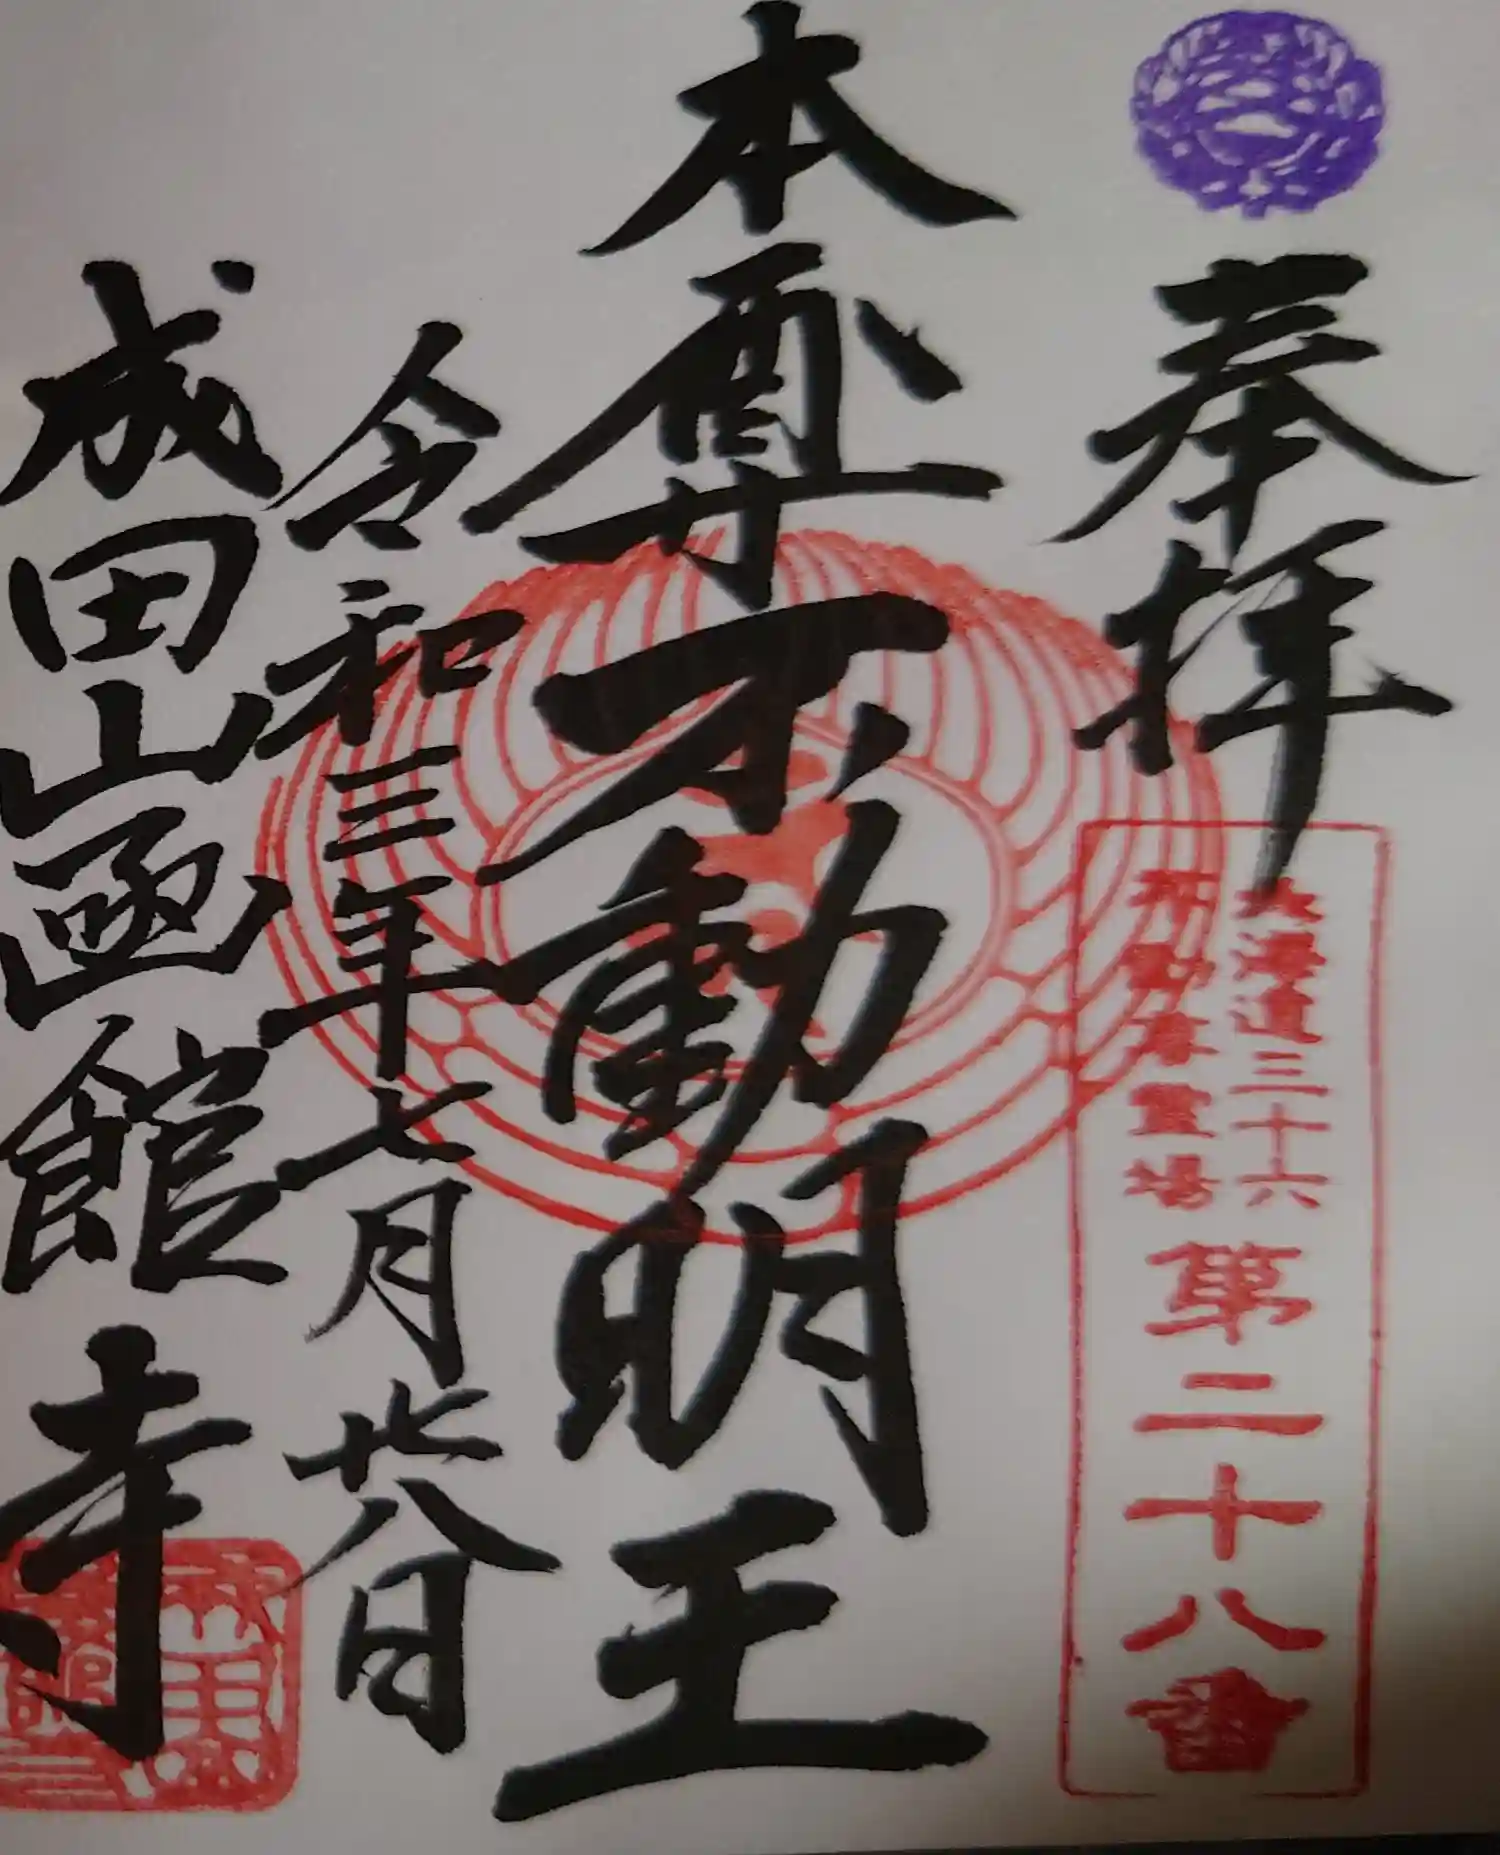 奉拝
北海道三十六
不動尊霊場
第二十八番
本尊不動明王
令和三年七月廿八日
成田山凾館寺